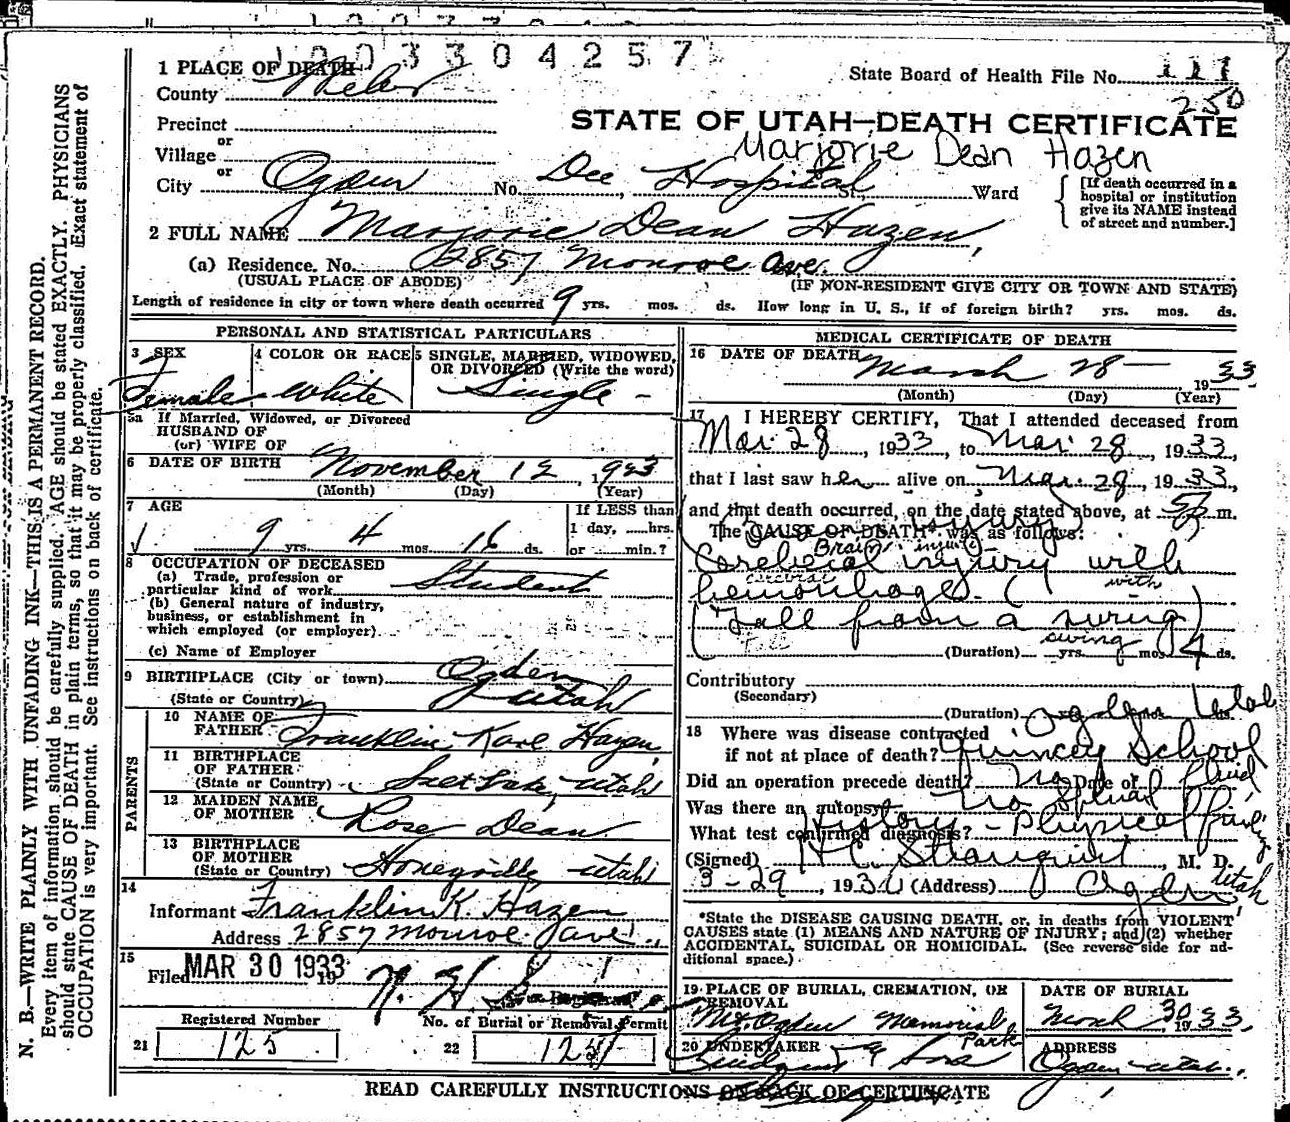 1003304257
1 PLACE OF DEATH
County Weber
State Board of Health File No. 111
250
Precinct
or
Village
or
STATE OF UTAH—DEATH CERTIFICATE
Marjorie Dean Hazen
City Ogden No. Dee Hospital St., Ward
[If death occurred in a hospital or institution give its NAME instead of street and number.]
2 FULL NAME Marjorie Dean Hazen,
(a) Residence. No. 2857 Monroe Ave.
(USUAL PLACE OF ABODE) (IF NON-RESIDENT GIVE CITY OR TOWN AND STATE)
Length of residence in city or town where death occurred 9 yrs. mos. ds. How long in U. S., if of foreign birth? yrs. mos. ds.
PERSONAL AND STATISTICAL PARTICULARS
3 SEX
Female
4 COLOR OR RACE
White
5 SINGLE, MARRIED, WIDOWED, OR DIVORCED (Write the word)
Single -
5a If Married, Widowed, or Divorced
HUSBAND OF
(or) WIFE OF
6 DATE OF BIRTH November 12 1923
(Month) (Day) (Year)
7 AGE
9 yrs. 4 mos. 16 ds.
If LESS than
1 day, hrs.
or min.?
8 OCCUPATION OF DECEASED
(a) Trade, profession or
particular kind of work Student
(b) General nature of industry,
business, or establishment in
which employed (or employer)
(c) Name of Employer
9 BIRTHPLACE (City or town) Ogden
(State or Country) Utah
PARENTS
10 NAME OF
FATHER Franklin Karl Hazen
11 BIRTHPLACE
OF FATHER
(State or Country) Salt Lake, Utah
12 MAIDEN NAME
OF MOTHER Rose Dean
13 BIRTHPLACE
OF MOTHER
(State or Country) Honeyville Utah
14
Informant Franklin K. Hazen
Address 2857 Monroe Ave.
15
Filed MAR 30 1933 19
Registered Number
21 125
No. of Burial or Removal Permit
22 125
MEDICAL CERTIFICATE OF DEATH
16 DATE OF DEATH March 28 — 1933
(Month) (Day) (Year)
17 I HEREBY CERTIFY, That I attended deceased from
Mar. 28, 1933, to Mar. 28, 1933,
that I last saw her alive on Mar. 28, 1933,
and that death occurred, on the date stated above, at 5 P m.
The CAUSE OF DEATH* was as follows:
Brain injury
Cerebral injury with
cerebral with
hemorrhage. (
(Fall from a swing)
Fall swing
(Duration) yrs. mos. ds.
Contributory
(Secondary)
(Duration)
Ogden Utah
18 Where was disease contracted
if not at place of death? Quincey School
Did an operation precede death? No Date of
Was there an autopsy? No Spinal fluid
What test confirmed diagnosis? History - Physical finding
(Signed) H.C. Stranquist, M. D.
3-29, 193 (Address) Ogden Utah
*State the DISEASE CAUSING DEATH, or, in deaths from VIOLENT
CAUSES state (1) MEANS AND NATURE OF INJURY; and (2) whether
ACCIDENTAL, SUICIDAL OR HOMICIDAL. (See reverse side for ad-
ditional space.)
19 PLACE OF BURIAL, CREMATION, OR REMOVAL
Mt. Ogden Memorial Park
DATE OF BURIAL
March 30 1933,
20 UNDERTAKER
Lindquist & Sons
ADDRESS
Ogden Utah.
READ CAREFULLY INSTRUCTIONS ON BACK OF CERTIFICATE
N. B.—WRITE PLAINLY WITH UNFADING INK—THIS IS A PERMANENT RECORD.
Every item of information should be carefully supplied. AGE should be stated EXACTLY. PHYSICIANS
should state CAUSE OF DEATH in plain terms, so that it may be properly classified. Exact statement of
OCCUPATION is very important. See instructions on back of certificate.